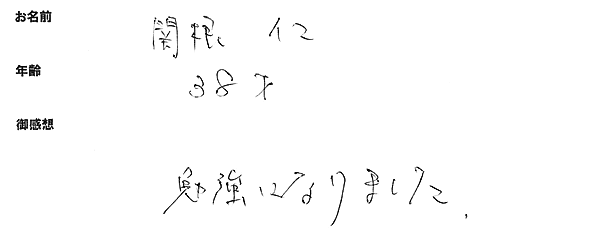 お名前
関根 仁
年齢
38才
御感想
勉強になりました.